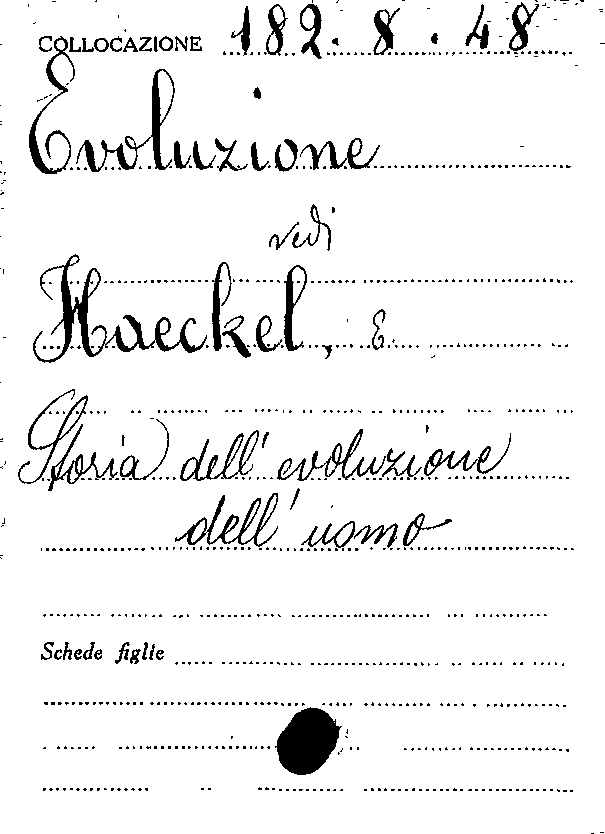 COLLOCAZIONE 182.8.48
Evoluzione
vedi
Haeckel, E.
Storia dell'evoluzione
dell'uomo
Schede figlie